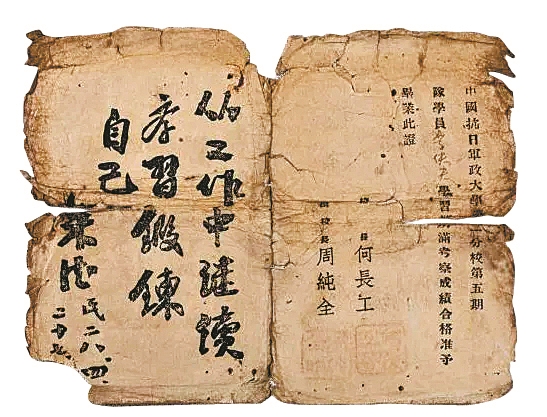 中國抗日軍政大學分校第五期
隊學員學習滿考察成績合格准予
畢業此證
長 何長工
校長 周純全
从工作中继續
学習鍛鍊
自己
朱德
民二八、四、
二十七